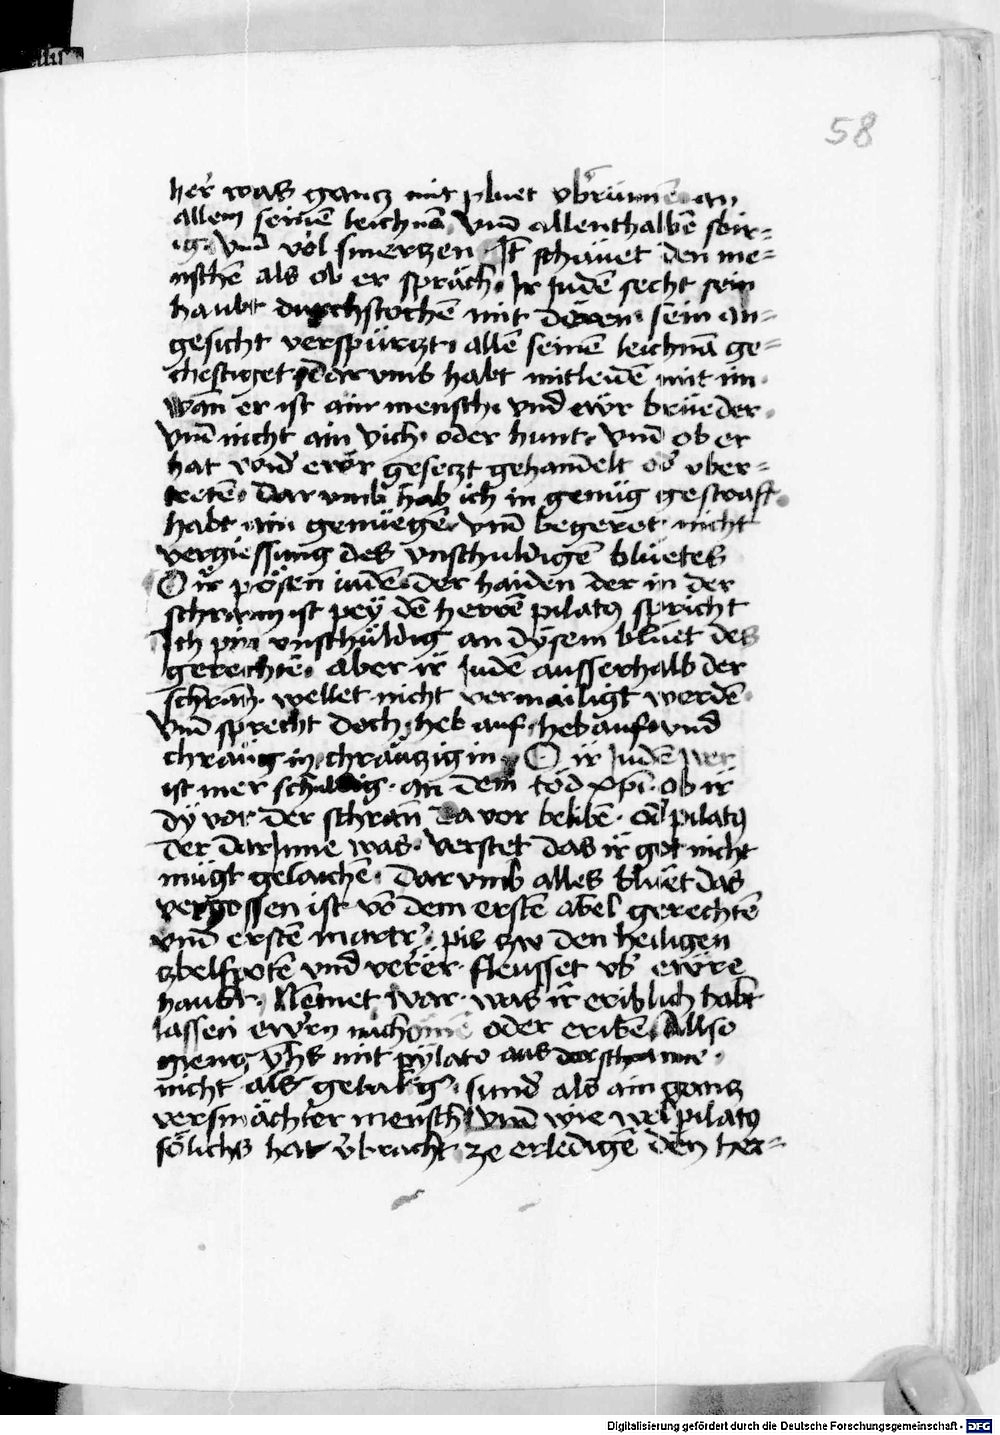 58
her was gancz mit pluet vbrunnen an
allem seinē leichnā vnd allenthalbē sbir=
ig vnd vol smerczen. It schäuet den me=
nschē als ob er spräch. Ir Judē secht sein
haubt durchstochē mit dören. sein an=
gesicht verspürczt. allē seinē leichnā ge=
chestiget. darvmb habt mitleidē mit im.
Wan er ist ain mensch. vnd ewr brüeder.
vnd nicht ain vich. oder hunt. vnd ob er
hat wider ewr geseczt gehandelt oď vber=
tretē. dar vmb hab ich in genüg gestraft.
habt ain genüegē. vnd begeret nicht
vergiessung des vnschuldigē bluetes
O ir pösen iudē. der haiden der in der
schrann ist pey dē herrē pilatꝯ spricht
Ich pin vnschüldig an dysem bluet des
gerechtē. Aber ir Judē ausserhalb der
schrañ. wellet nicht vermailigt werdē.
vnd sprecht doch. heb auf. heb auf. vnd
chräuczig in. chräuczig in. O ir Judē wer
ist mer schuldig. an dem töd xp̄i. ob ir
dy vor der schrañ da vor belibē. oď pilatꝯ
der darJnne was. verstet das ir got nicht
mügt gelaichē. dar vmb alles bluet das
vergossen ist võ dem erstē abel gerechtē
vnd erstē martr̄. pis zw den heiligen
zbelfpotē vnd verer. fleusset vb ewre
haubt. Nēmet war. was ir eriblich habt
lassen ewrn nachömē oder eribē. Allso
gieng yhs mit pylato aus der schranne.
nicht als gewaltig. sunď als ain gancz
versmächter mensch. vnd wie wel pilatꝯ
sölichs hat v̄bracht. ze erledigē den her=
Digitalisierung gefördert durch die Deutsche Forschungsgemeinschaft - DFG